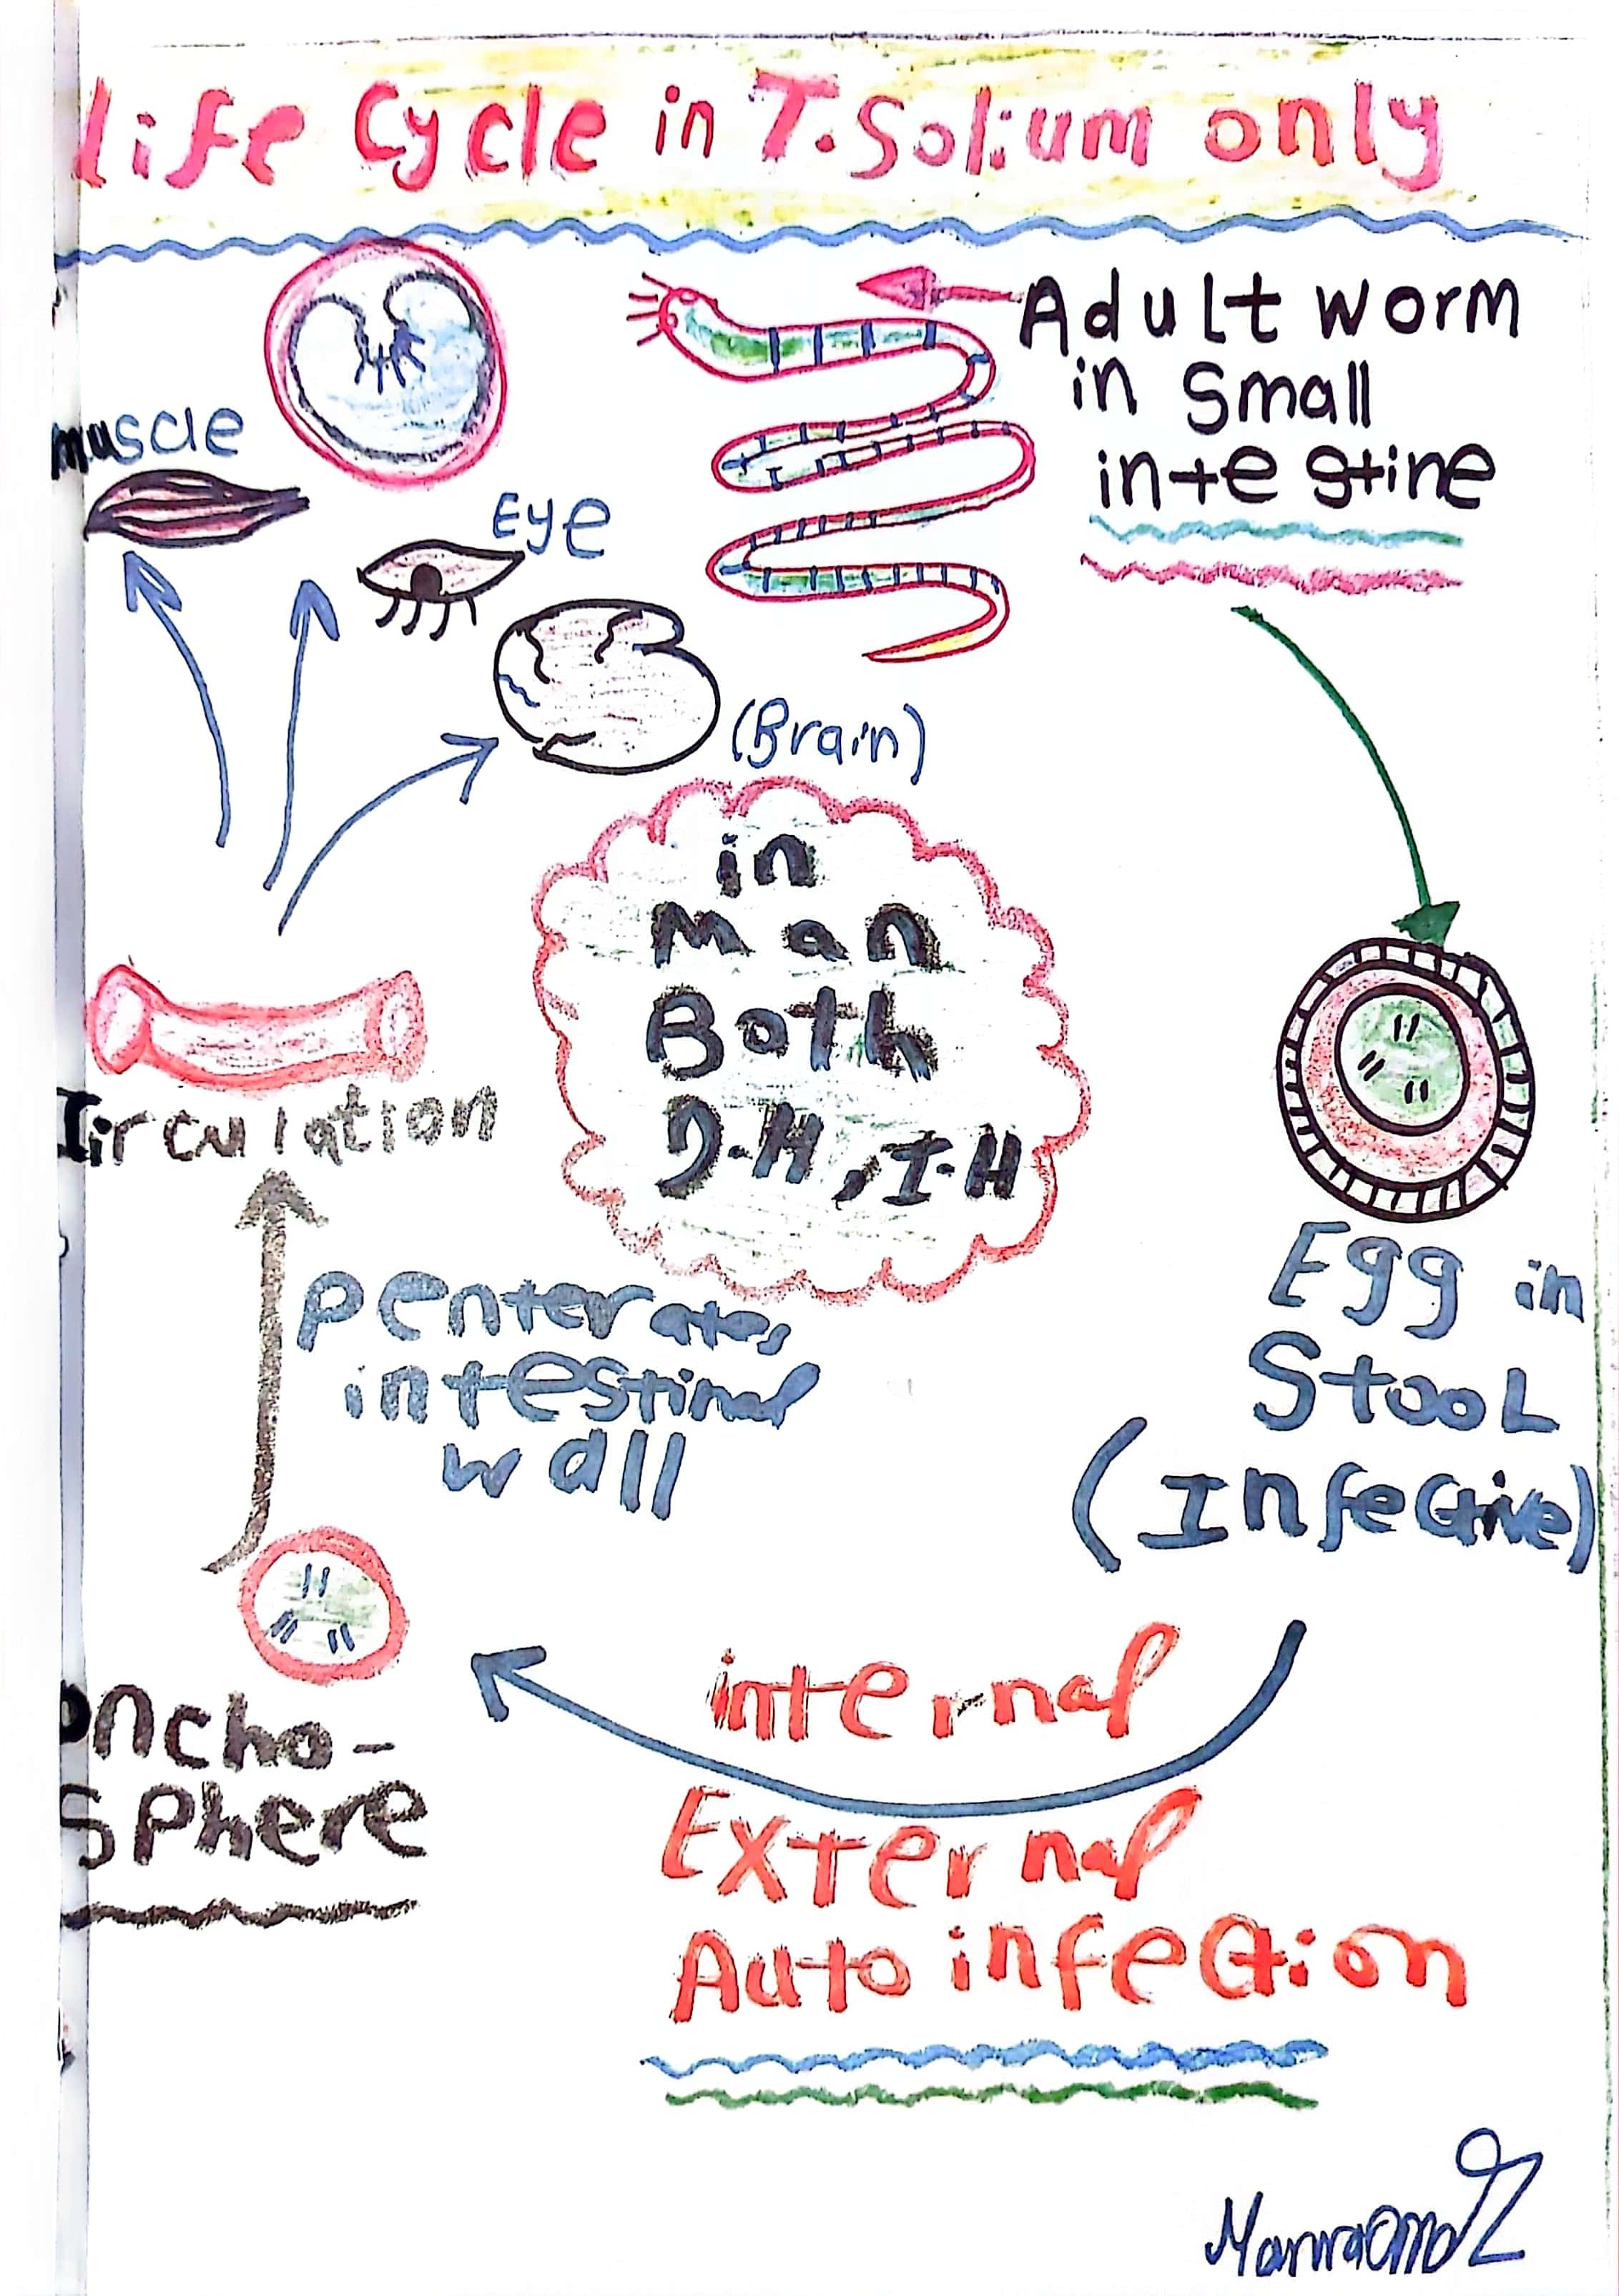 Life Cycle in T.Solium only
Adult worm
in Small
intestine
muscle
Eye
(Brain)
in
Man
Both
D.H, I.H
Circulation
Penterates
intestinal
wall
Egg in
Stool
(Infective)
oncho-
sphere
internal
External
Auto infection